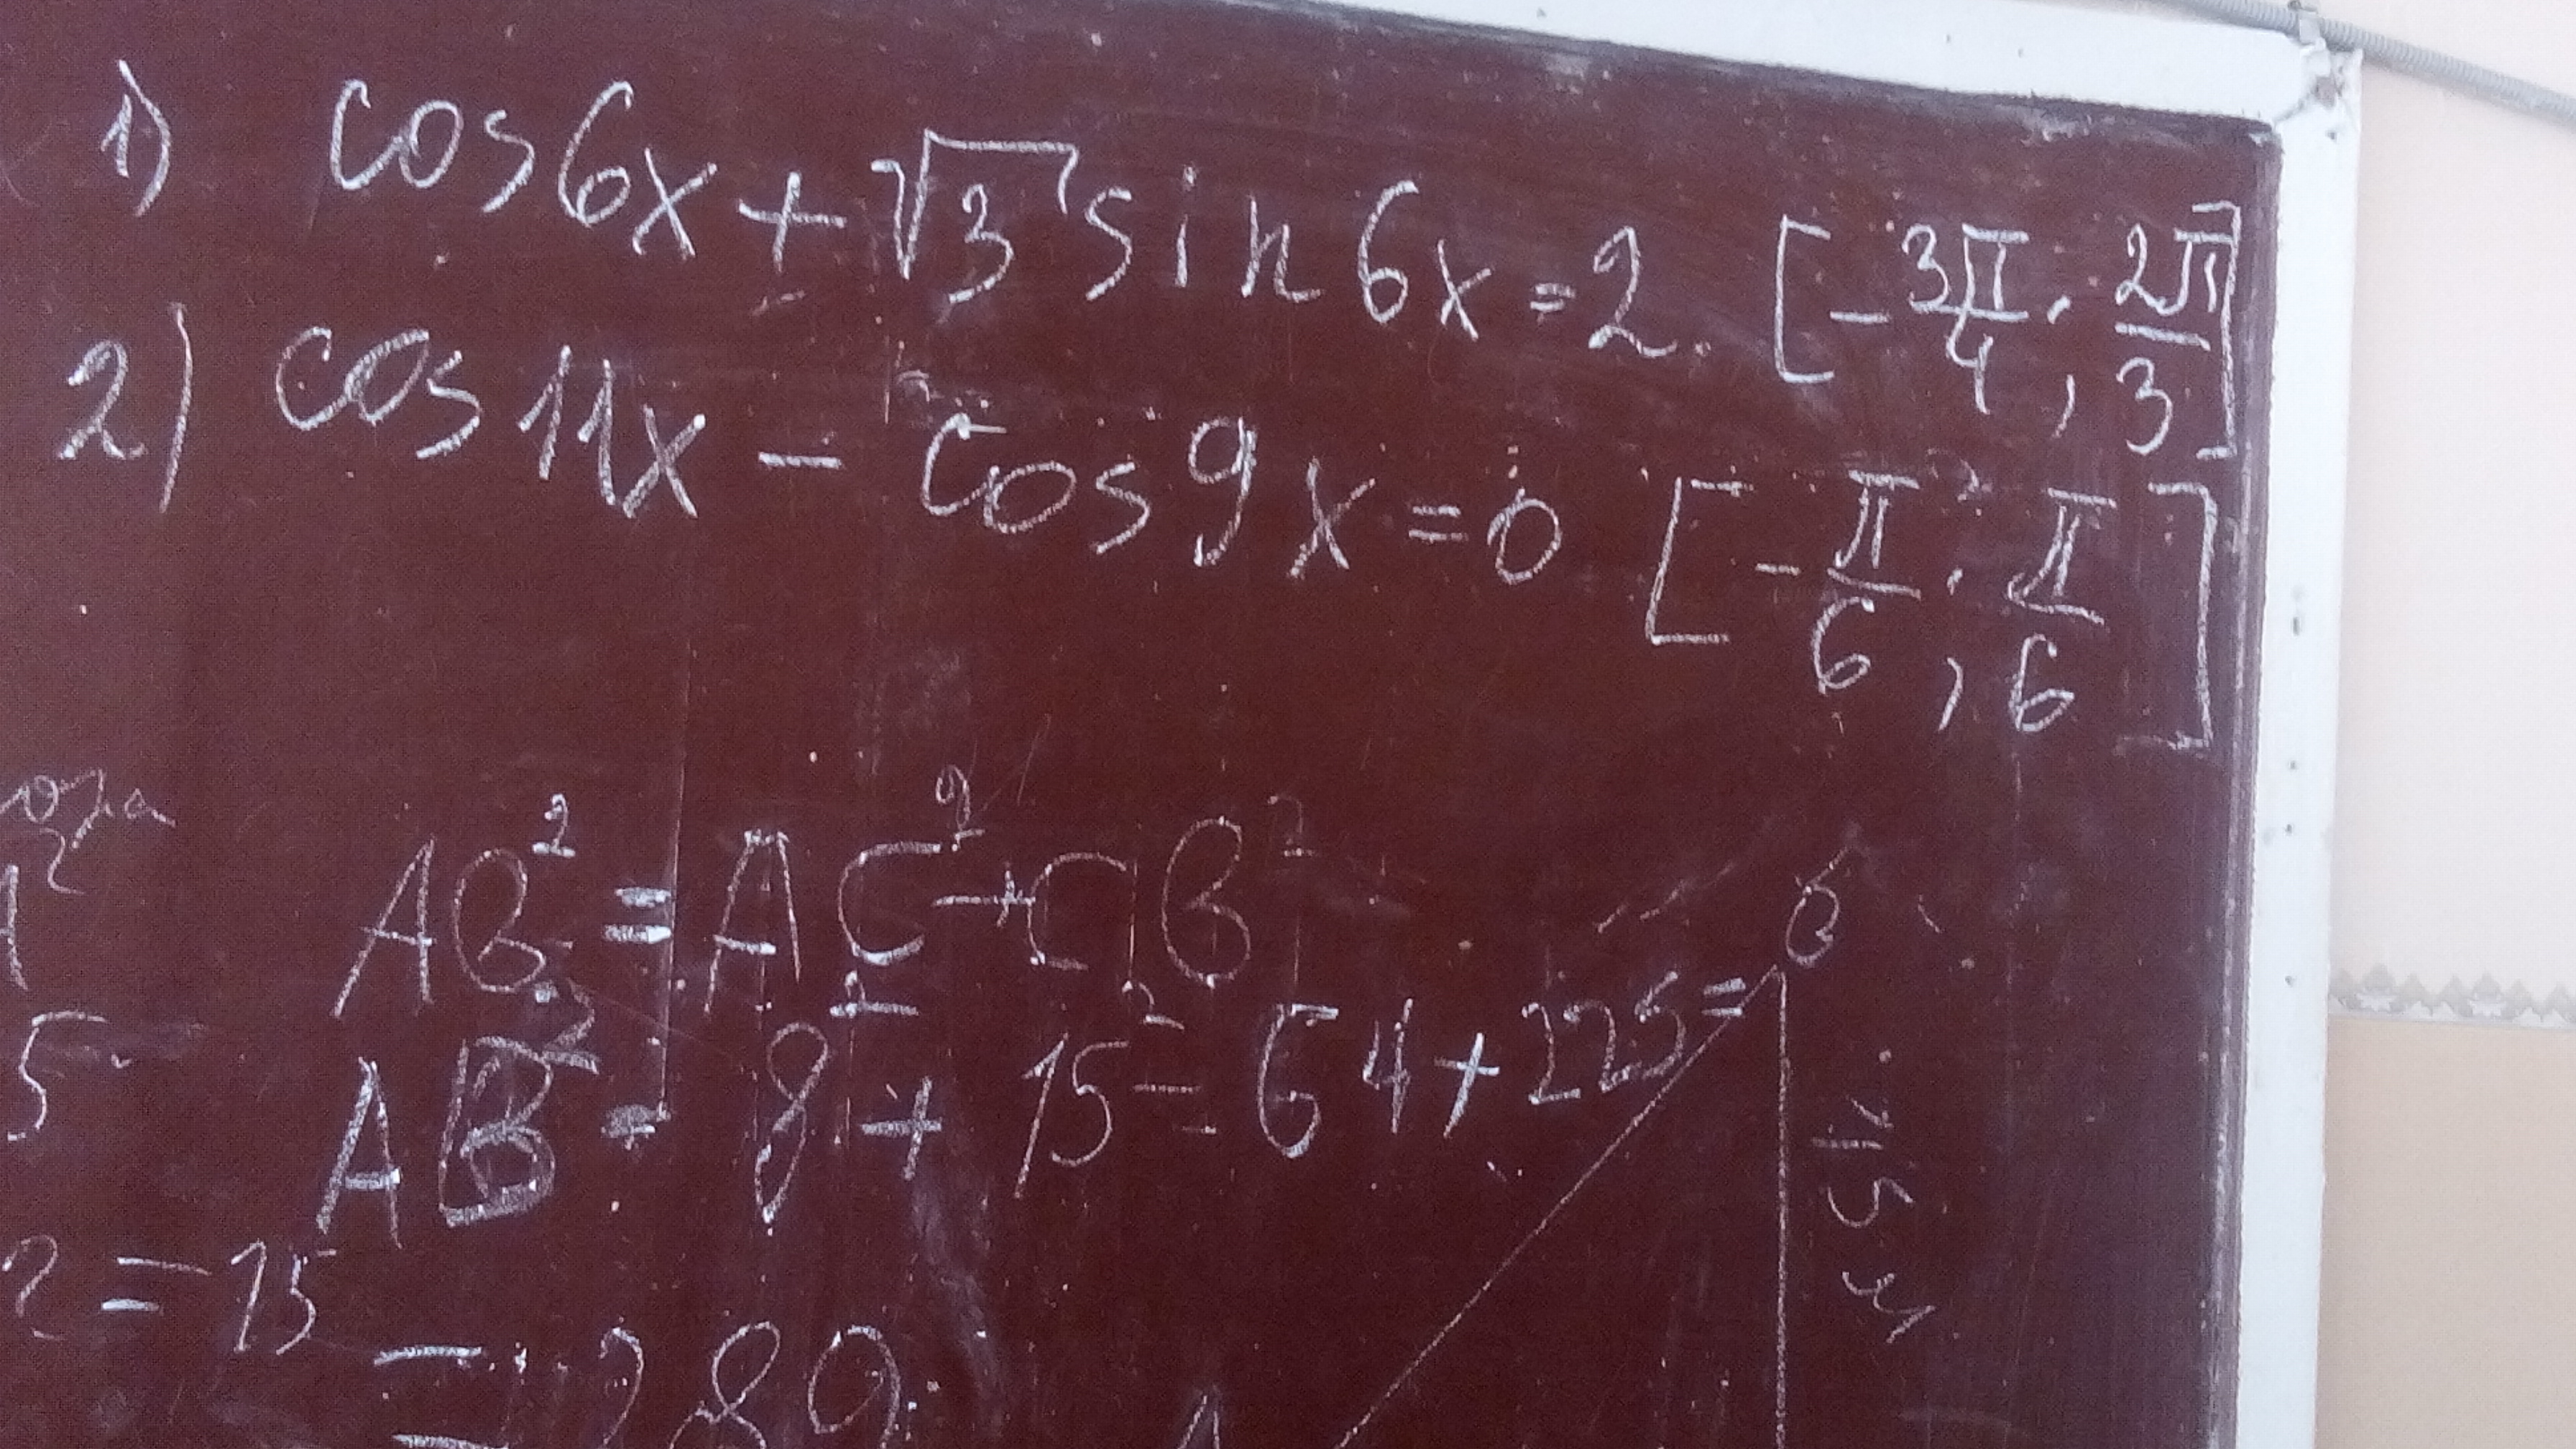 1) cos6x + √3 sin6x = 2. [-3π/4; 2π/3]
2) cos11x - cos9x = 0 [-π/6; π/6]
AB² = AC² + CB²
AB² = 8² + 15² = 64 + 225 =
2 = 15
= 289
B
15